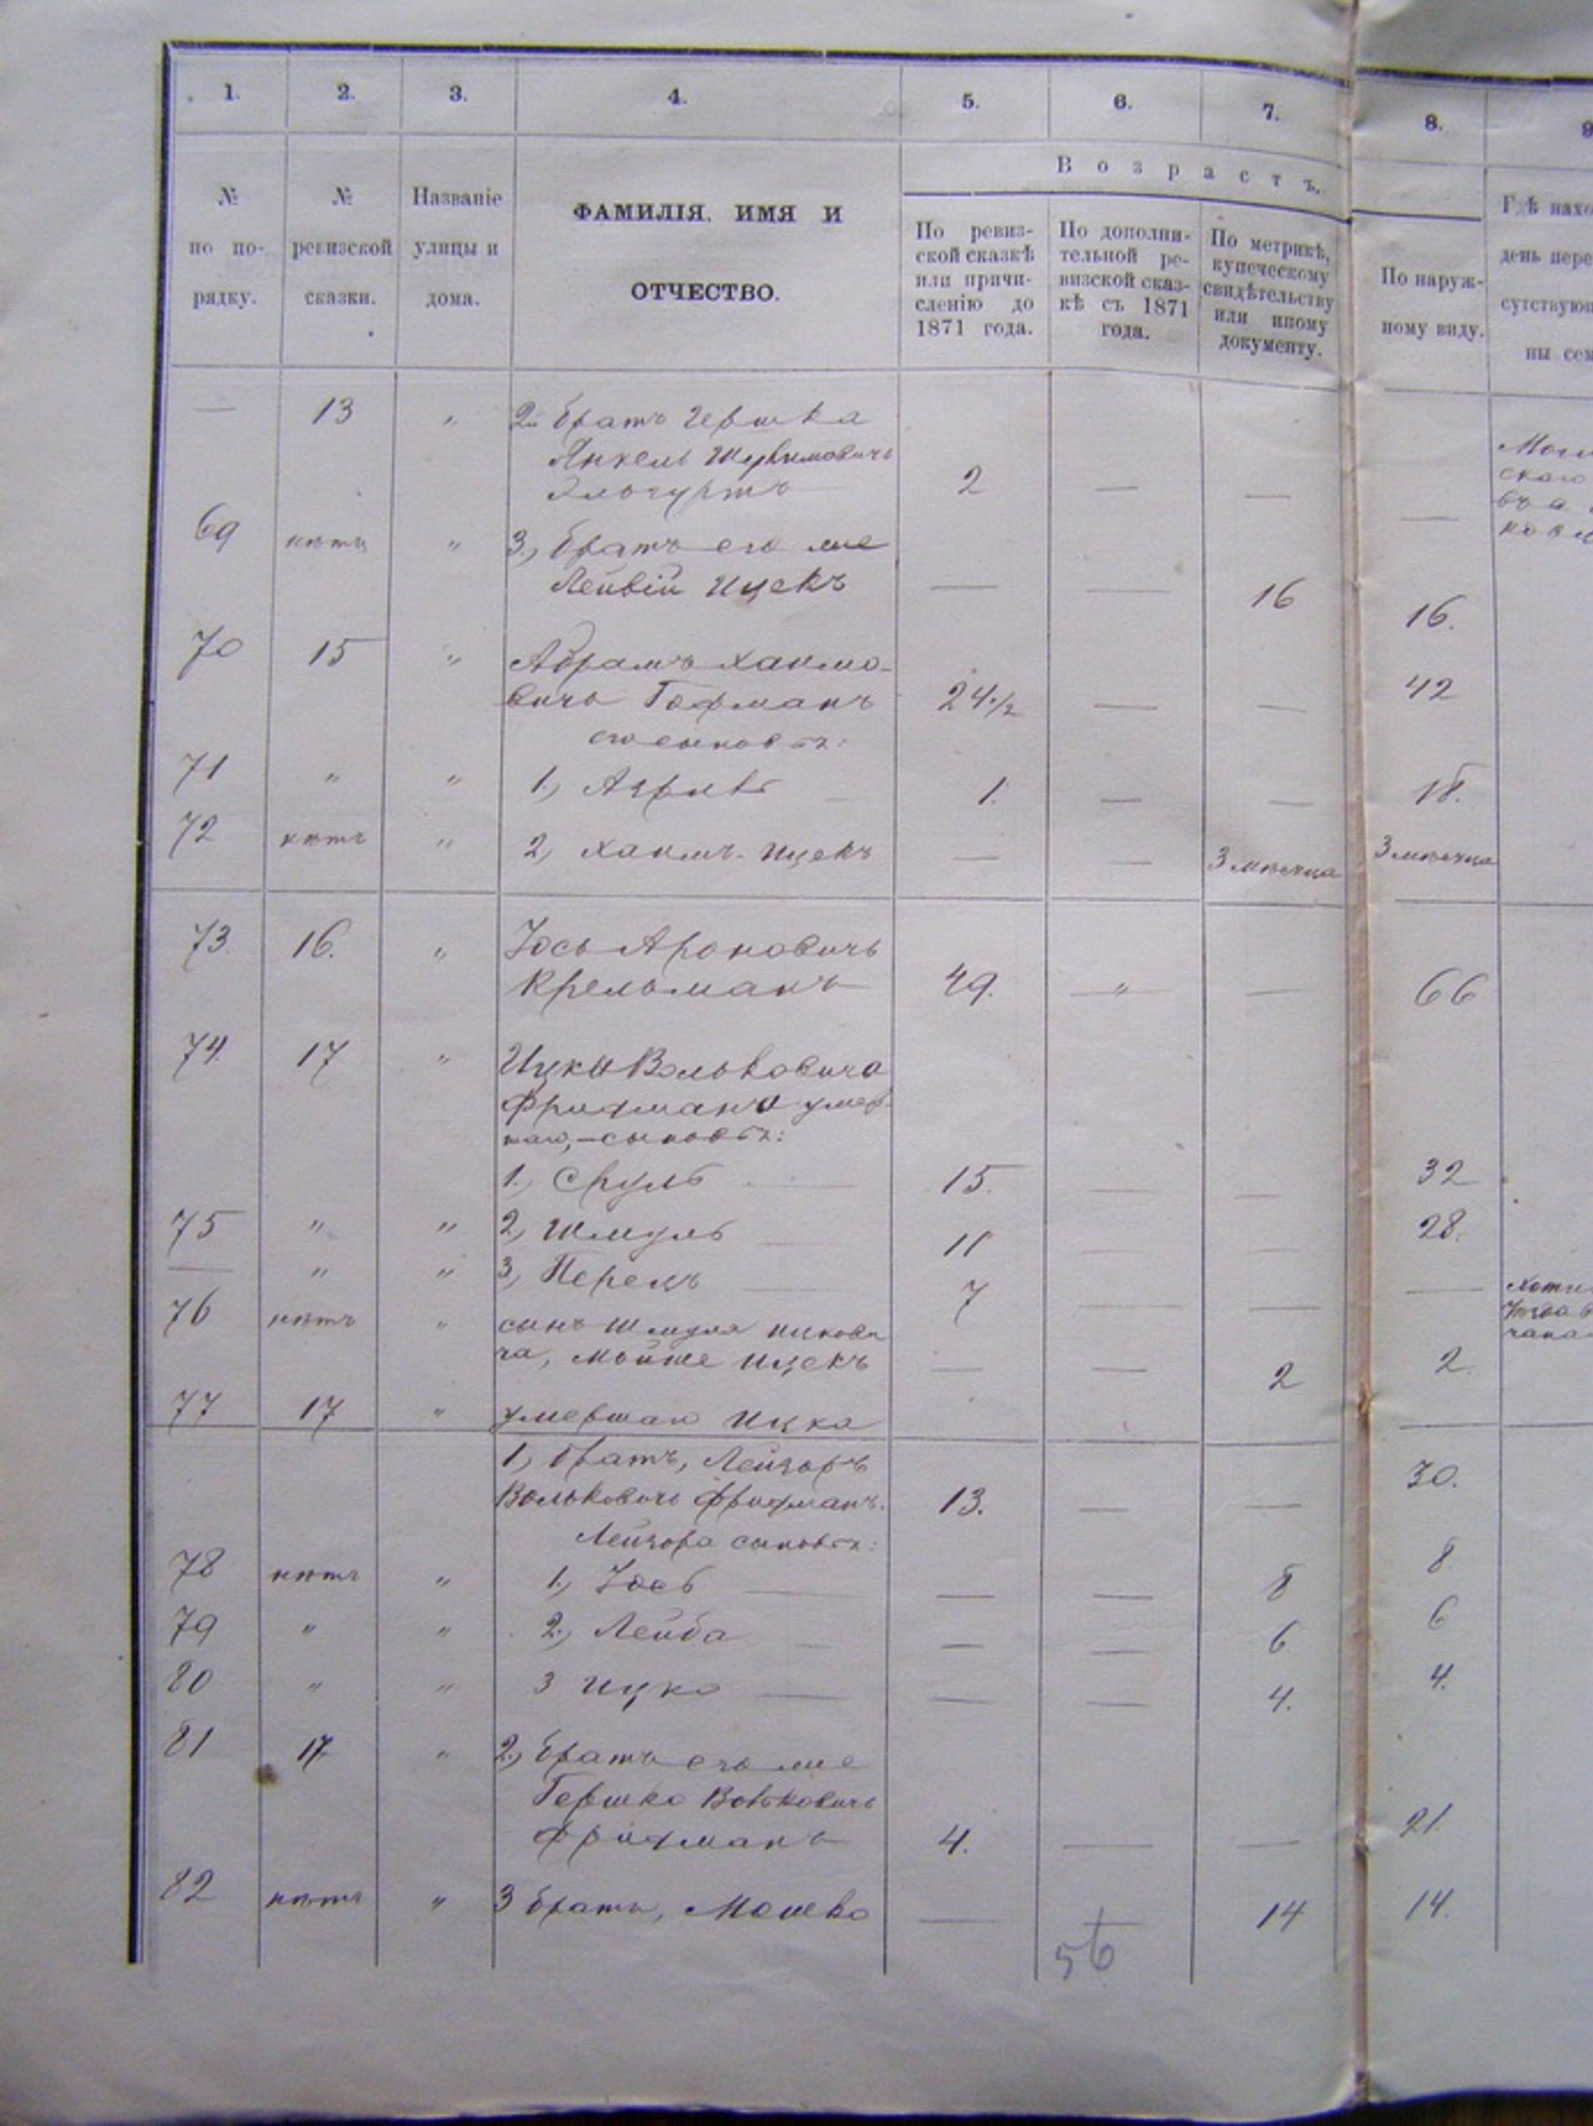 1. 2. 3. 4. 5. 6. 7. 8. 9
№ по порядку.
№ ревизской сказки.
Названіе улицы и дома.
ФАМИЛІЯ, ИМЯ И
ОТЧЕСТВО.
Возрастъ.
По ревиз-
ской сказкѣ
или причи-
сленію до
1871 года.
По дополни-
тельной ре-
визской сказ-
кѣ съ 1871
года.
По метрикѣ,
купеческому
свидѣтельству
или иному
документу.
По наруж-
ному виду.
Гдѣ нахо
день пере
сутствую
ны сем
— 13 " 2й братъ Гершка
Янкель
2 — — —
69 нѣтъ " 3, братъ его же
Лейвій Ицекъ — — 16 16.
70 15 " Абрамъ Хаимо-
вичъ Гофманъ 24 1/2 — — 42
его сыновья:
71 " " 1, 1. — — 18.
72 нѣтъ " 2, Хаимъ-Ицекъ — — 3 мѣсяца 3 мѣсяца
73. 16. " Іось Ароновичъ
Крельманъ 49. — " — — 66
74. 17 " Ицка Вольковича
Фридмана умер-
шаго, - сыновья:
1, Сруль 15. — — 32
75 " " 2, Шмуль 11 — — 28.
— " " 3, Перецъ 7 — — —
76 нѣтъ " сынъ Шмуля Ицкови
ча, Мойше Ицекъ — — 2 2.
77 17 " умершаго Ицка
1, братъ, Лейзоръ
Вольковичъ Фридманъ. 13. — — 30.
Лейзора сыновья:
78 нѣтъ " 1, Іось — — 8 8.
79 " " 2, Лейба — — 6. 6
80 " " 3 Ицко — — 4. 4.
81 17. " 2, братъ его же
Гершко Вольковичъ
Фридманъ 4. — — 21.
82 нѣтъ " 3 братъ, Мошко — — 14 14.
56